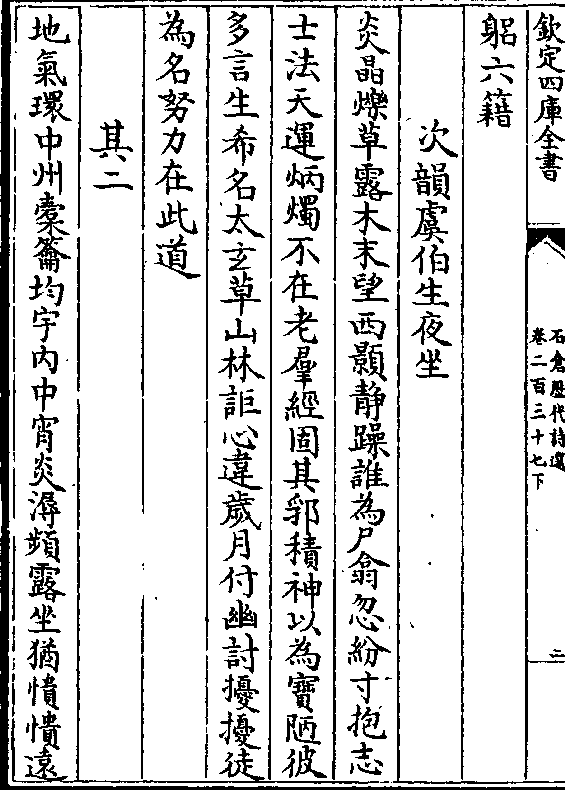 欽定四庫全書
石倉歷代詩選
卷二百三十七下
二
躬六籍
次韻虞伯生夜坐
炎晶爍草露木末望西顥静躁誰為尸翕忽紛寸抱志
士法天運炳燭不在老羣經固其郛積神以為寶陋彼
多言生希名太玄草山林詎心違歲月付幽討擾擾徒
為名努力在此道
其二
地氣環中州橐籥均宇内中宵炎潯頻露坐猶憒憒遠